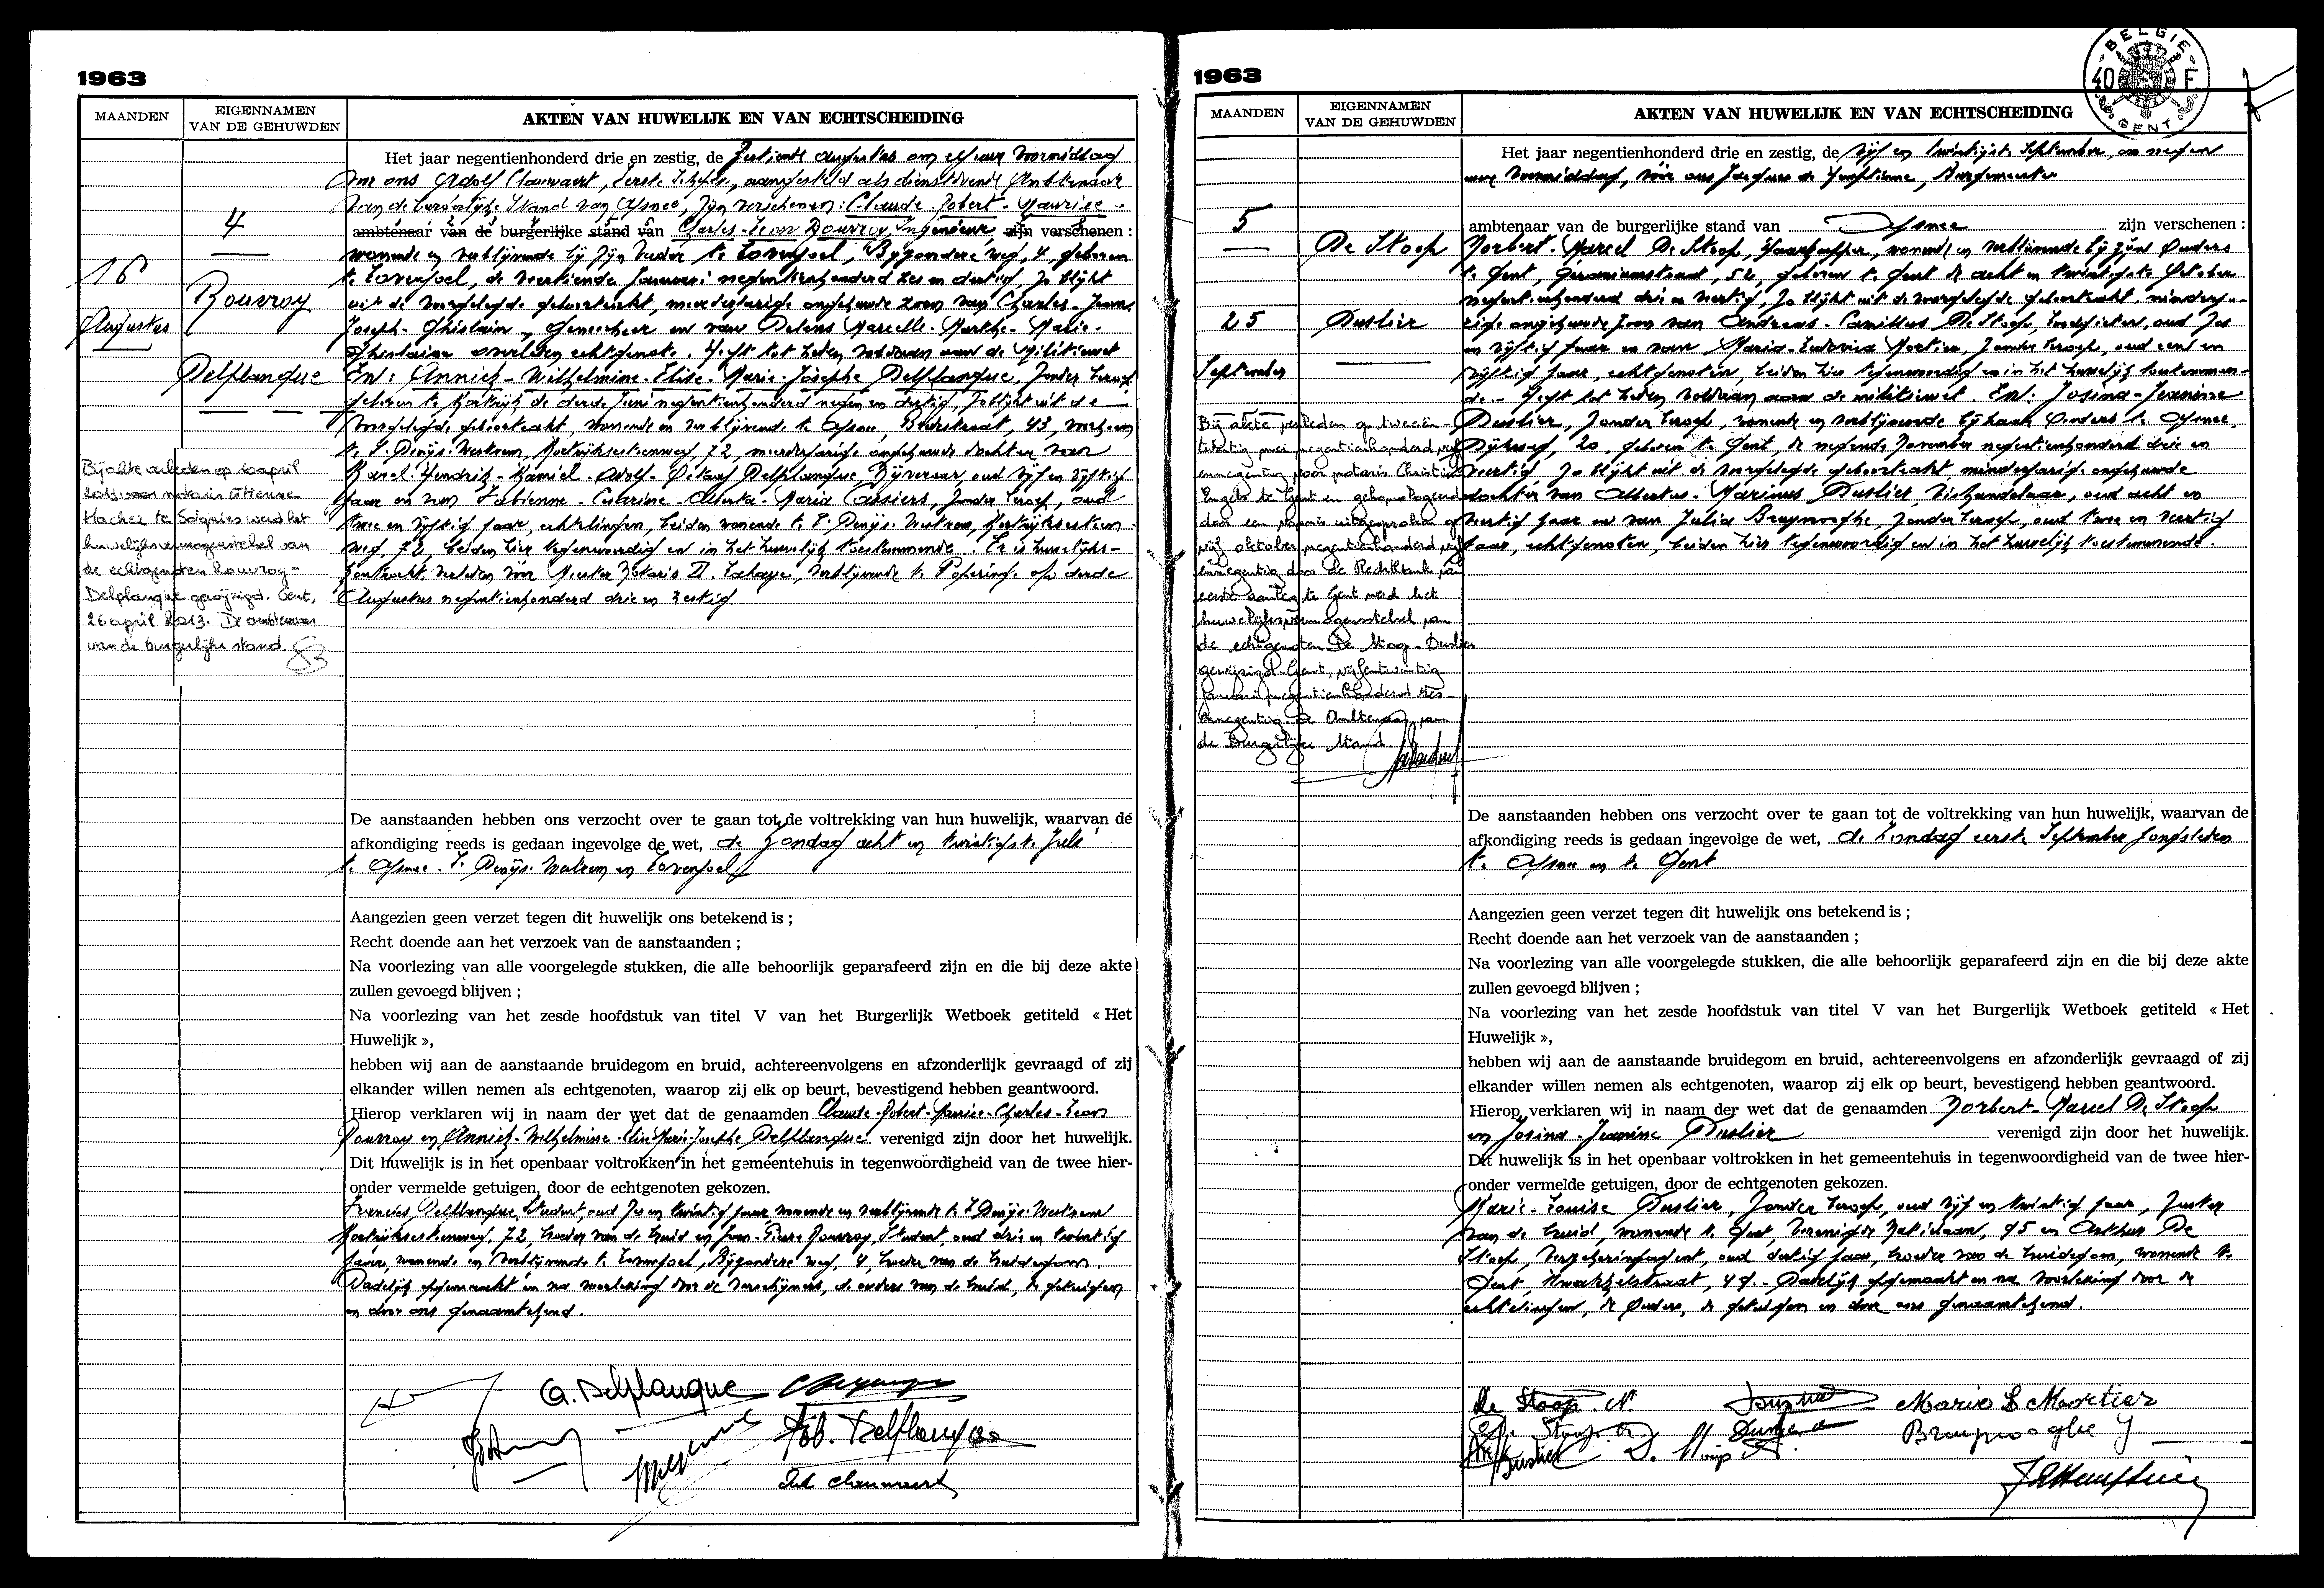 1963
MAANDEN
EIGENNAMEN
VAN DE GEHUWDEN
AKTEN VAN HUWELIJK EN VAN ECHTSCHEIDING
4
16
Augustus
Rouvroy
Delplanque
Het jaar negentienhonderd drie en zestig, de zestiende augustus om elf uur voormiddag
voor ons Adolf Clauwaert, eerste Schepen, aangesteld als dienstdoende Ambtenaar
van de burgerlijke Stand van Afsnee, zijn verschenen: Claude-Robert-Maurice-
ambtenaar van de burgerlijke stand van Charles-Leon Rouvroy, Ingenieur, zijn verschenen :
wonende en verblijvende bij zijn vader te Lovenjoel, Bijzondere weg, 4, geboren
te Lovenjoel, de veertiende januari negentienhonderd zes en dertig, zo blijkt
uit de voorgelegde geboorteakt, meerderjarige ongehuwde zoon van Charles-Jean-
Joseph-Ghislain, Geneesheer en van Delens Marcelle-Marthe-Marie-
Ghislaine overleden echtgenote. Heeft tot heden voldaan aan de militiewet
En: Annick-Wilhelmine-Elise-Marie-Josephe Delplanque, zonder beroep
geboren te Kortrijk de derde Juni negentienhonderd negen en dertig, zo blijkt uit de
voorgelegde geboorteakt, wonende en verblijvende te Afsnee, 43, voorheen
te S. Denijs-Westrem, Kortrijksesteenweg, 72, meerderjarige ongehuwde dochter van
Karel-Hendrik-Kamiel-Adolf-Octaaf Delplanque Nijveraar, oud vijf en vijftig
jaar en van Fabienne-Maria Cassiers, zonder beroep, oud
twee en vijftig jaar, echtelingen, beiden wonende te S. Denijs-Westrem, Kortrijksesteen-
weg, 72, beiden hier tegenwoordig en in het huwelijk toestemmende. Er is huwelijks-
kontrakt verleden vóór Meester Notaris D. Lahaye, verblijvende te Poperinge op derde
Augustus negentienhonderd drie en zestig
Bij akte verleden op 10 april
2013 voor notaris Etienne
Hachez te Soignies werd het
huwelijksvermogenstelsel van
de echtgenoten Rouvroy-
Delplanque gewijzigd. Gent,
26 april 2013. De ambtenaar
van de burgerlijke stand.
De aanstaanden hebben ons verzocht over te gaan tot de voltrekking van hun huwelijk, waarvan de
afkondiging reeds is gedaan ingevolge de wet, de zondag acht en twintigste Juli
te Afsnee. S. Denijs-Westrem en Lovenjoel
Aangezien geen verzet tegen dit huwelijk ons betekend is ;
Recht doende aan het verzoek van de aanstaanden ;
Na voorlezing van alle voorgelegde stukken, die alle behoorlijk geparafeerd zijn en die bij deze akte
zullen gevoegd blijven ;
Na voorlezing van het zesde hoofdstuk van titel V van het Burgerlijk Wetboek getiteld « Het
Huwelijk »,
hebben wij aan de aanstaande bruidegom en bruid, achtereenvolgens en afzonderlijk gevraagd of zij
elkander willen nemen als echtgenoten, waarop zij elk op beurt, bevestigend hebben geantwoord.
Hierop verklaren wij in naam der wet dat de genaamden Claude-Robert-Maurice-Charles-Leon
Rouvroy en Annick-Wilhelmine-Elise-Marie-Josephe Delplanque verenigd zijn door het huwelijk.
Dit huwelijk is in het openbaar voltrokken in het gemeentehuis in tegenwoordigheid van de twee hier-
onder vermelde getuigen, door de echtgenoten gekozen.
Francies Delplanque, Student, oud zes en twintig jaar, wonende en verblijvende te S. Denijs-Westrem
Kortrijksesteenweg, 72, broeder van de bruid en Jean-Pierre Rouvroy, Student, oud drie en twintig
jaar, wonende en verblijvende te Lovenjoel, Bijzondere weg, 4, broeder van de bruidegom.
Dadelijk opgemaakt en na voorlezing door de verschijners, de ouders van de bruid, de getuigen
en door ons genaamtekend.
A. Delplanque
Fab. Delplanque
Ad. Clauwaert
1963
BELGIE
40 F.
GENT
MAANDEN
EIGENNAMEN
VAN DE GEHUWDEN
AKTEN VAN HUWELIJK EN VAN ECHTSCHEIDING
5
De Stoop
25
Duslier
September
Het jaar negentienhonderd drie en zestig, de vijf en twintigste September, om negen
uur voormiddag, vóór ons Jacques de Hemptinne, Burgemeester
ambtenaar van de burgerlijke stand van Afsnee zijn verschenen :
Norbert-Marcel De Stoop, Haarkapper, wonende en verblijvende bij zijn Ouders
te Gent, Geraniumstraat, 52, geboren te Gent de acht en twintigste October
negentienhonderd drie en veertig, zo blijkt uit de voorgelegde geboorteakt, minderja-
rige ongehuwde zoon van Andreas-Camillus De Stoop, oud zes
en vijftig jaar en van Maria-Ludovica Mortier, zonder beroep, oud een en
vijftig jaar, echtgenoten, beiden hier tegenwoordig en in het huwelijk toestemmen-
de.- Heeft tot heden voldaan aan de militiewet. En: Josina-Jeannine
Duslier, zonder beroep, wonende en verblijvende bij haar Ouders te Afsnee,
Dijkweg, 20, geboren te Gent, de negende November negentienhonderd drie en
veertig, zo blijkt uit de voorgelegde geboorteakt minderjarige ongehuwde
dochter van Albertus-Marinus Duslier, Vishandelaar, oud acht en
veertig jaar en van Julia Bruynooghe, zonder beroep, oud twee en veertig
jaar, echtgenoten, beiden hier tegenwoordig en in het huwelijk toestemmende.
Bij akte verleden op tweeën-
twintig mei negentienhonderd vijf
ennegentig voor notaris Christian
Engels te Gent en gehomologeerd
door een vonnis uitgesproken op
vijf oktober negentienhonderd vijf
ennegentig door de Rechtbank van
eerste aanleg te Gent werd het
huwelijksvermogensstelsel van
de echtgenoten De Stoop-Duslier
gewijzigd. Gent, vijfentwintig
januari negentienhonderd zes-
ennegentig. De Ambtenaar van
de Burgerlijke Stand
De aanstaanden hebben ons verzocht over te gaan tot de voltrekking van hun huwelijk, waarvan de
afkondiging reeds is gedaan ingevolge de wet, de Zondag eerste September jongstleden
te Afsnee en te Gent
Aangezien geen verzet tegen dit huwelijk ons betekend is ;
Recht doende aan het verzoek van de aanstaanden ;
Na voorlezing van alle voorgelegde stukken, die alle behoorlijk geparafeerd zijn en die bij deze akte
zullen gevoegd blijven ;
Na voorlezing van het zesde hoofdstuk van titel V van het Burgerlijk Wetboek getiteld « Het
Huwelijk »,
hebben wij aan de aanstaande bruidegom en bruid, achtereenvolgens en afzonderlijk gevraagd of zij
elkander willen nemen als echtgenoten, waarop zij elk op beurt, bevestigend hebben geantwoord.
Hierop verklaren wij in naam der wet dat de genaamden Norbert-Marcel De Stoop
en Josina-Jeannine Duslier verenigd zijn door het huwelijk.
Dit huwelijk is in het openbaar voltrokken in het gemeentehuis in tegenwoordigheid van de twee hier-
onder vermelde getuigen, door de echtgenoten gekozen.
Marie-Louise Duslier, zonder beroep, oud vijf en twintig jaar, zuster
van de bruid, wonende te Gent, Verenigde Natieslaan, 95 en Arthur De
Stoop, Verzekeringsagent, oud dertig jaar, broeder van de bruidegom, wonende te
Gent, Kwartelstraat, 47.- Dadelijk opgemaakt en na voorlezing door de
echtelingen, de Ouders, de getuigen en door ons genaamtekend.
De Stoop. N
Marie L Mortier
De Stoop. A
Bruynooghe J
Duslier
D. Stoop A